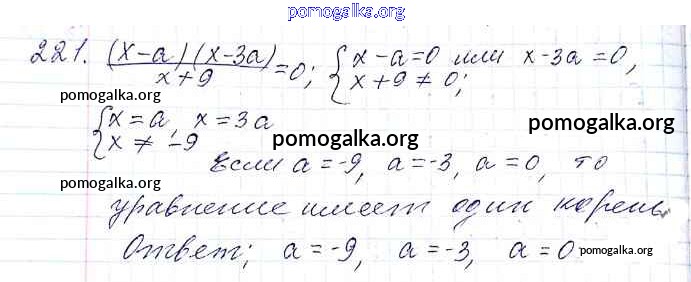 pomogalka.org
221. (x-a)(x-3a)/x+9 =0; { x-a=0 или x-3a=0,
x+9≠0;
pomogalka.org
{ x=a, x=3a
x≠-9
pomogalka.org pomogalka.org
Если a=-9, a=-3, a=0, то
pomogalka.org
уравнение имеет один корень
Ответ; a=-9, a=-3, a=0 pomogalka.org